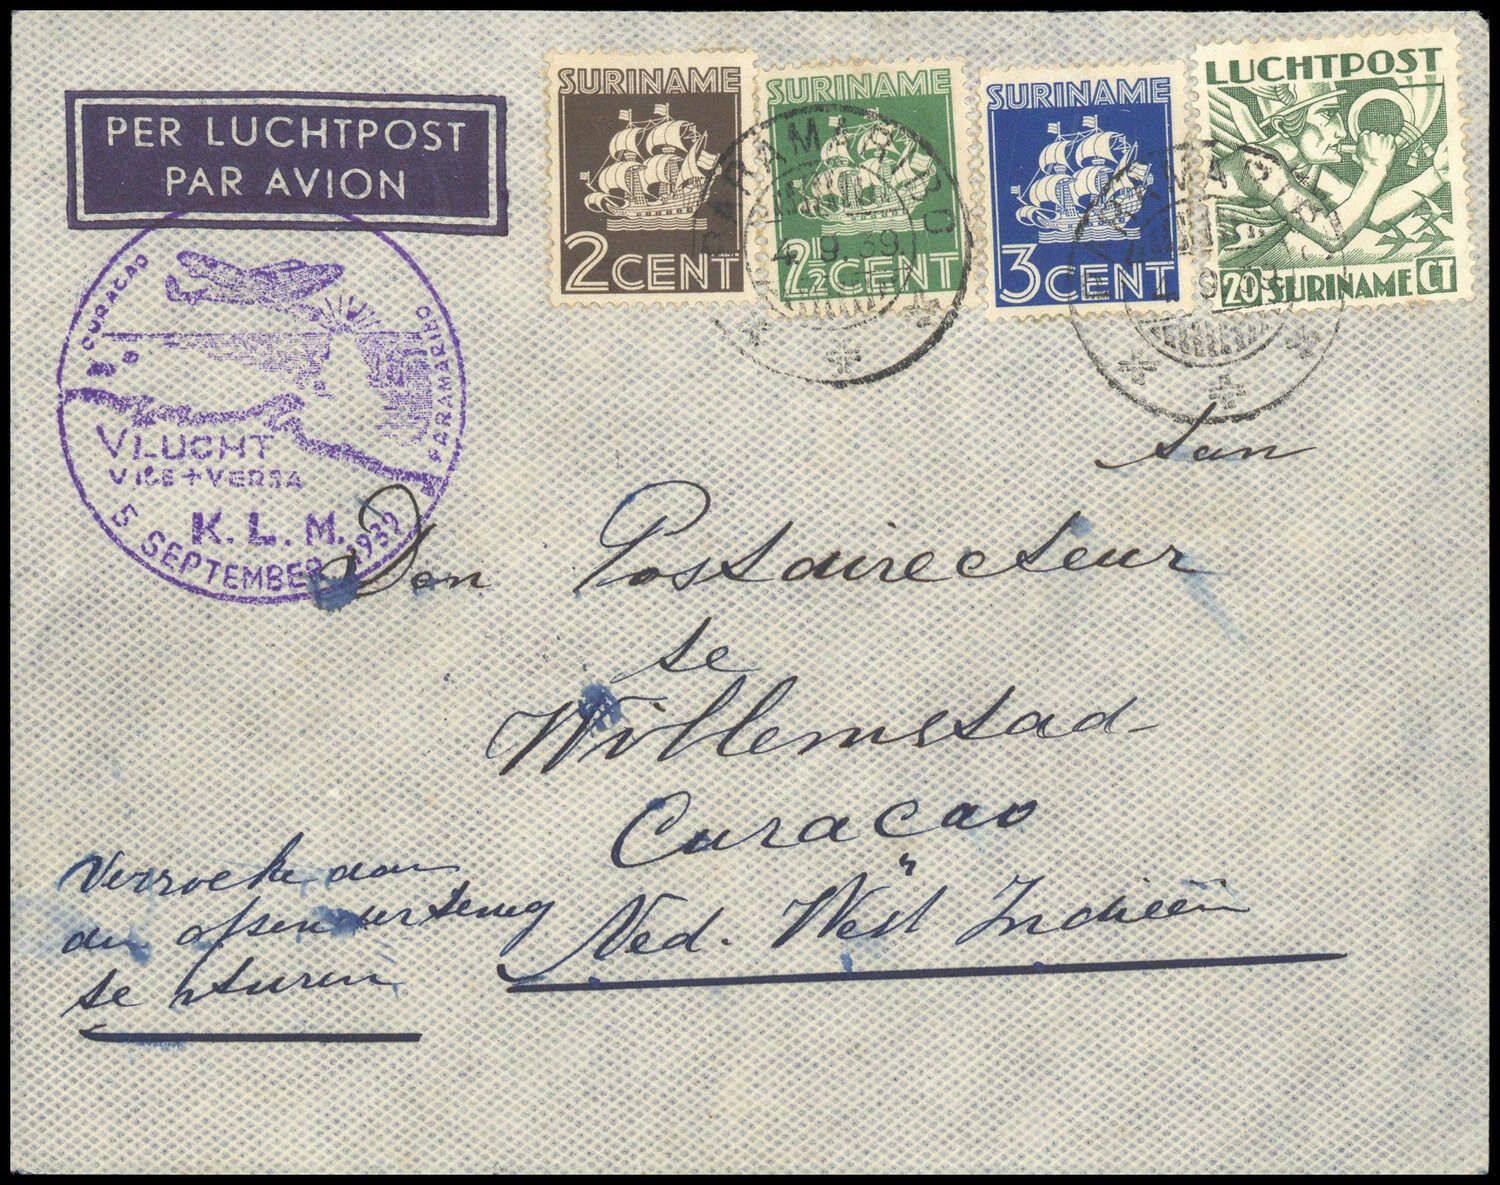 PER LUCHTPOST
PAR AVION
SURINAME
2 CENT
SURINAME
2½ CENT
SURINAME
3 CENT
LUCHTPOST
20 SURINAME CT
PARAMARIBO
4.9.39
PARAMARIBO
CURACAO
PARAMARIBO
VLUCHT
VICE + VERSA
K.L.M.
5 SEPTEMBER 1939
Aan
Den Postdirecteur
te
Willemstad
Curacao
Ned. West Indieën
Verzoeke aan
den afzender terug
te sturen